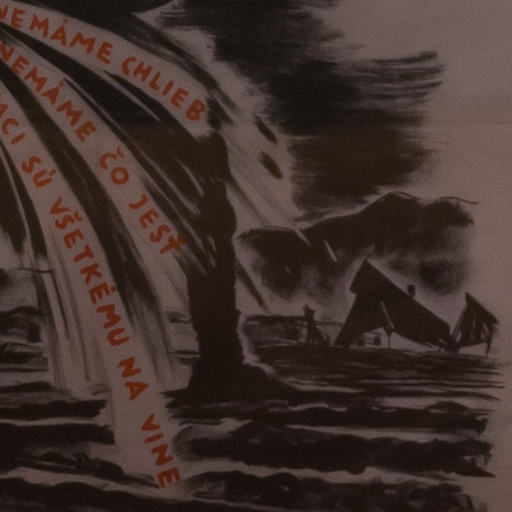 NEMÁME CHLIEB
NEMÁME ČO JESŤ
SÚ VŠETKÉMU NA VINE